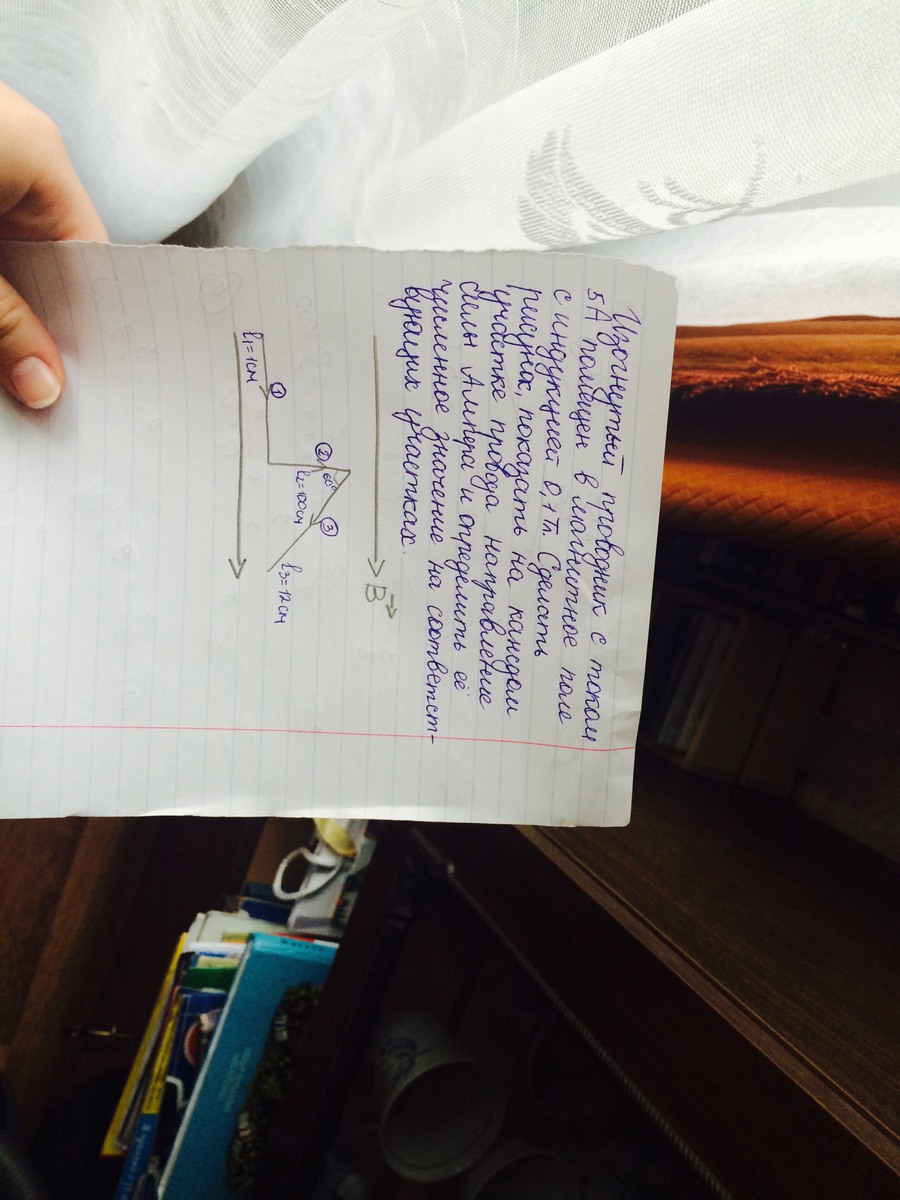 Изогнутый проводник с током
5А помещен в магнитное поле
с индукцией 0,1Тл Сделать
рисунок, показать на каждом
участке провода направление
силы Ампера и определить её
численное значение на соответст-
вующих участках.
B
①
②
60°
③
l₁=1см
l₂=100см
l₃=12см